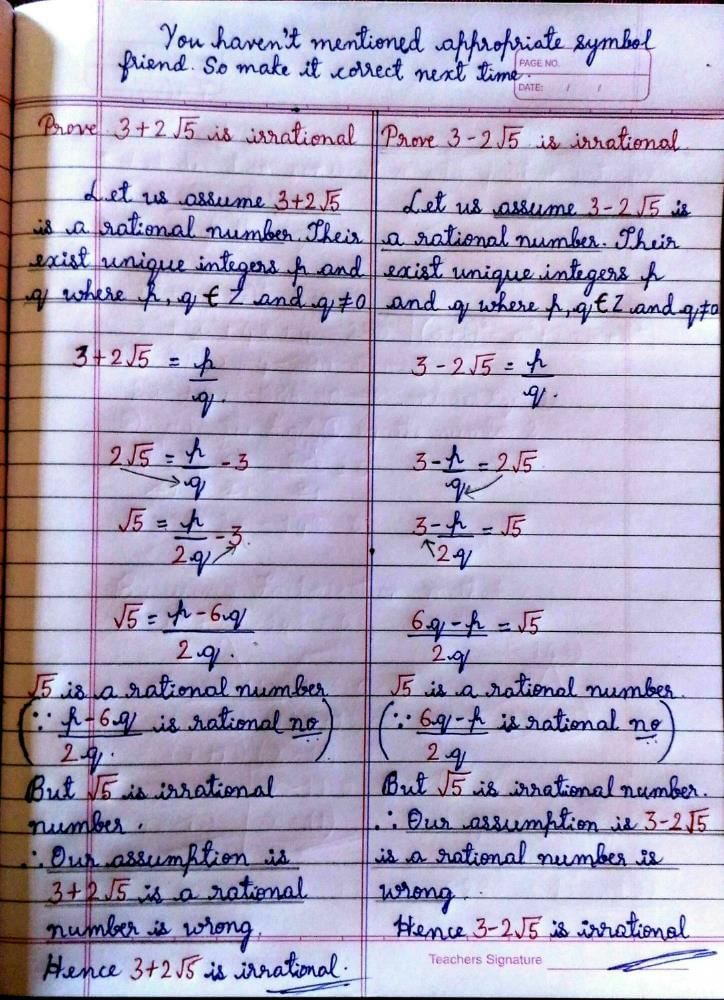 You haven't mentioned appropriate symbol
friend. So make it correct next time.
PAGE NO.
DATE: / /
Prove 3+2√5 is irrational
Let us assume 3+2√5
is a rational number. Their
exist unique integers p and
q where p, q ∈ Z and q≠0
3+2√5 = p/q.
2√5 = p/q - 3
√5 = p/2q - 3.
√5 = p-6q/2q.
√5 is a rational number
(∵ p-6q/2q. is rational no)
But √5 is irrational
number.
∴ Our assumption is
3+2√5 is a rational
number is wrong.
Hence 3+2√5 is irrational.
Prove 3-2√5 is irrational.
Let us assume 3-2√5 is
a rational number. Their
exist unique integers p
and q where p, q ∈ Z and q≠0
3-2√5 = p/q.
3-p/q = 2√5
3-p/2q = √5
6q-p/2q = √5
√5 is a rational number.
(∵ 6q-p/2q is rational no)
But √5 is irrational number.
∴ Our assumption is 3-2√5
is a rational number is
wrong.
Hence 3-2√5 is irrational
Teachers Signature